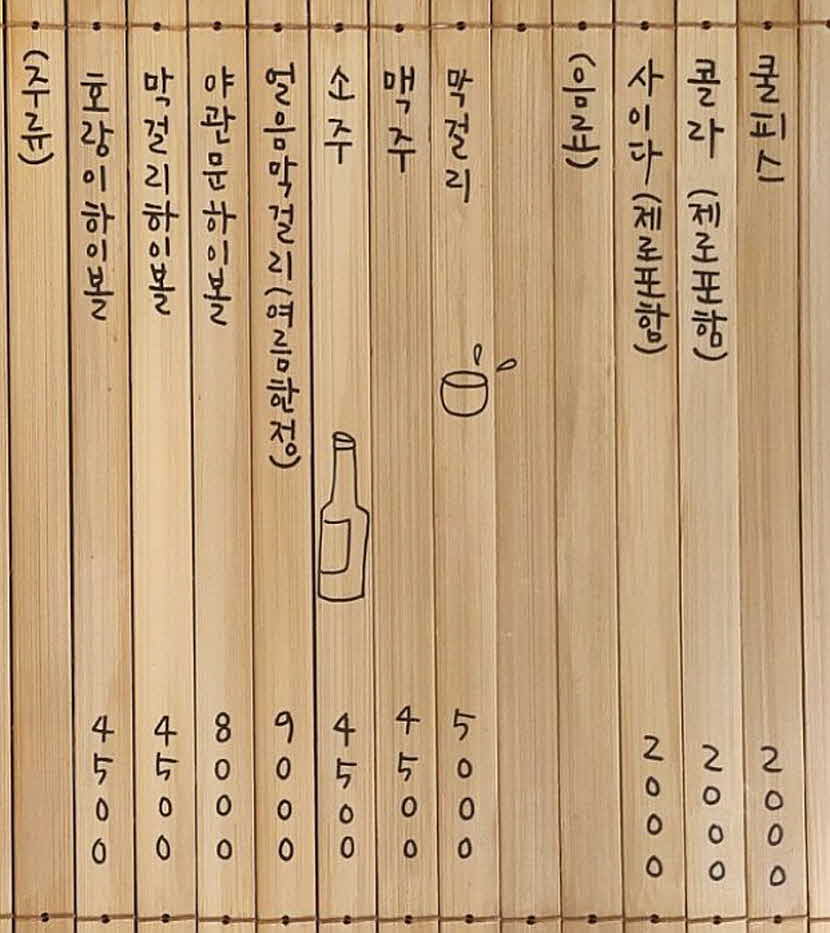 (주류)
호랑이하이볼 4500
막걸리하이볼 4500
야관문하이볼 8000
얼음막걸리(여름한정) 9000
소주 4500
맥주 4500
막걸리 5000
(음료)
사이다(제로포함) 2000
콜라(제로포함) 2000
쿨피스 2000